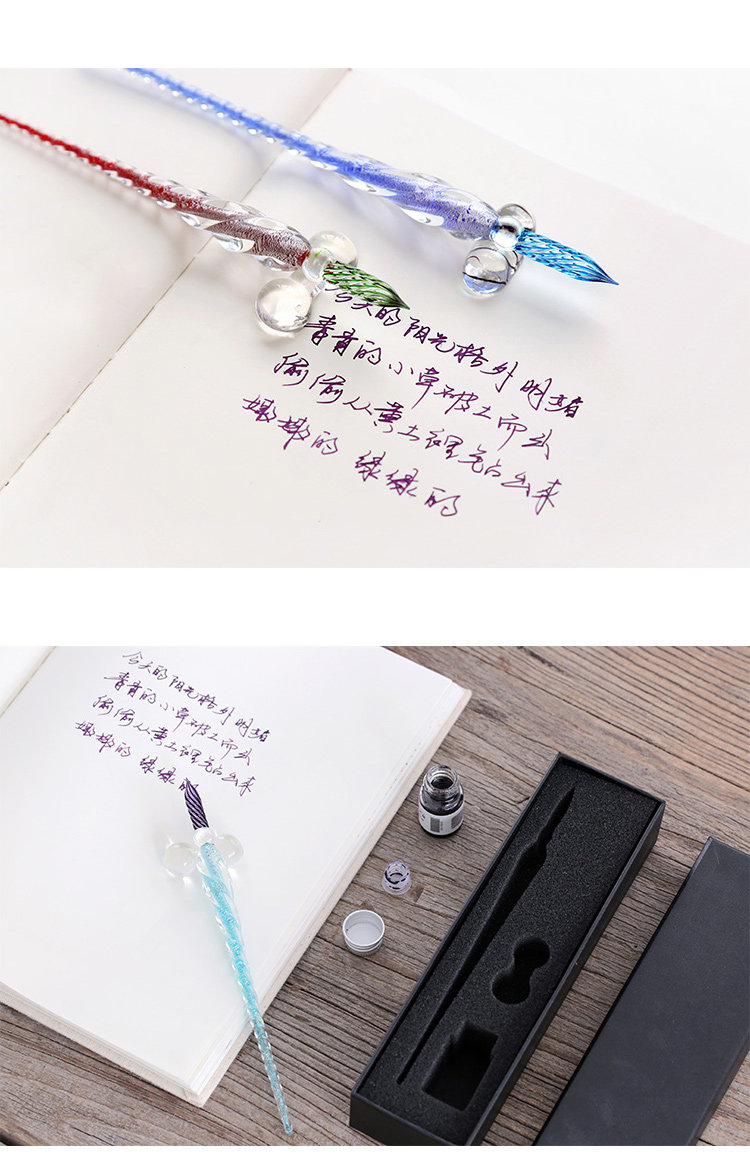 今天的阳光格外明媚
青青的小草破土而出
偷偷从黄土裡钻出来
嫩嫩的 绿绿的
今天的阳光格外明媚
青青的小草破土而出
偷偷从黄土裡钻出来
嫩嫩的 绿绿的